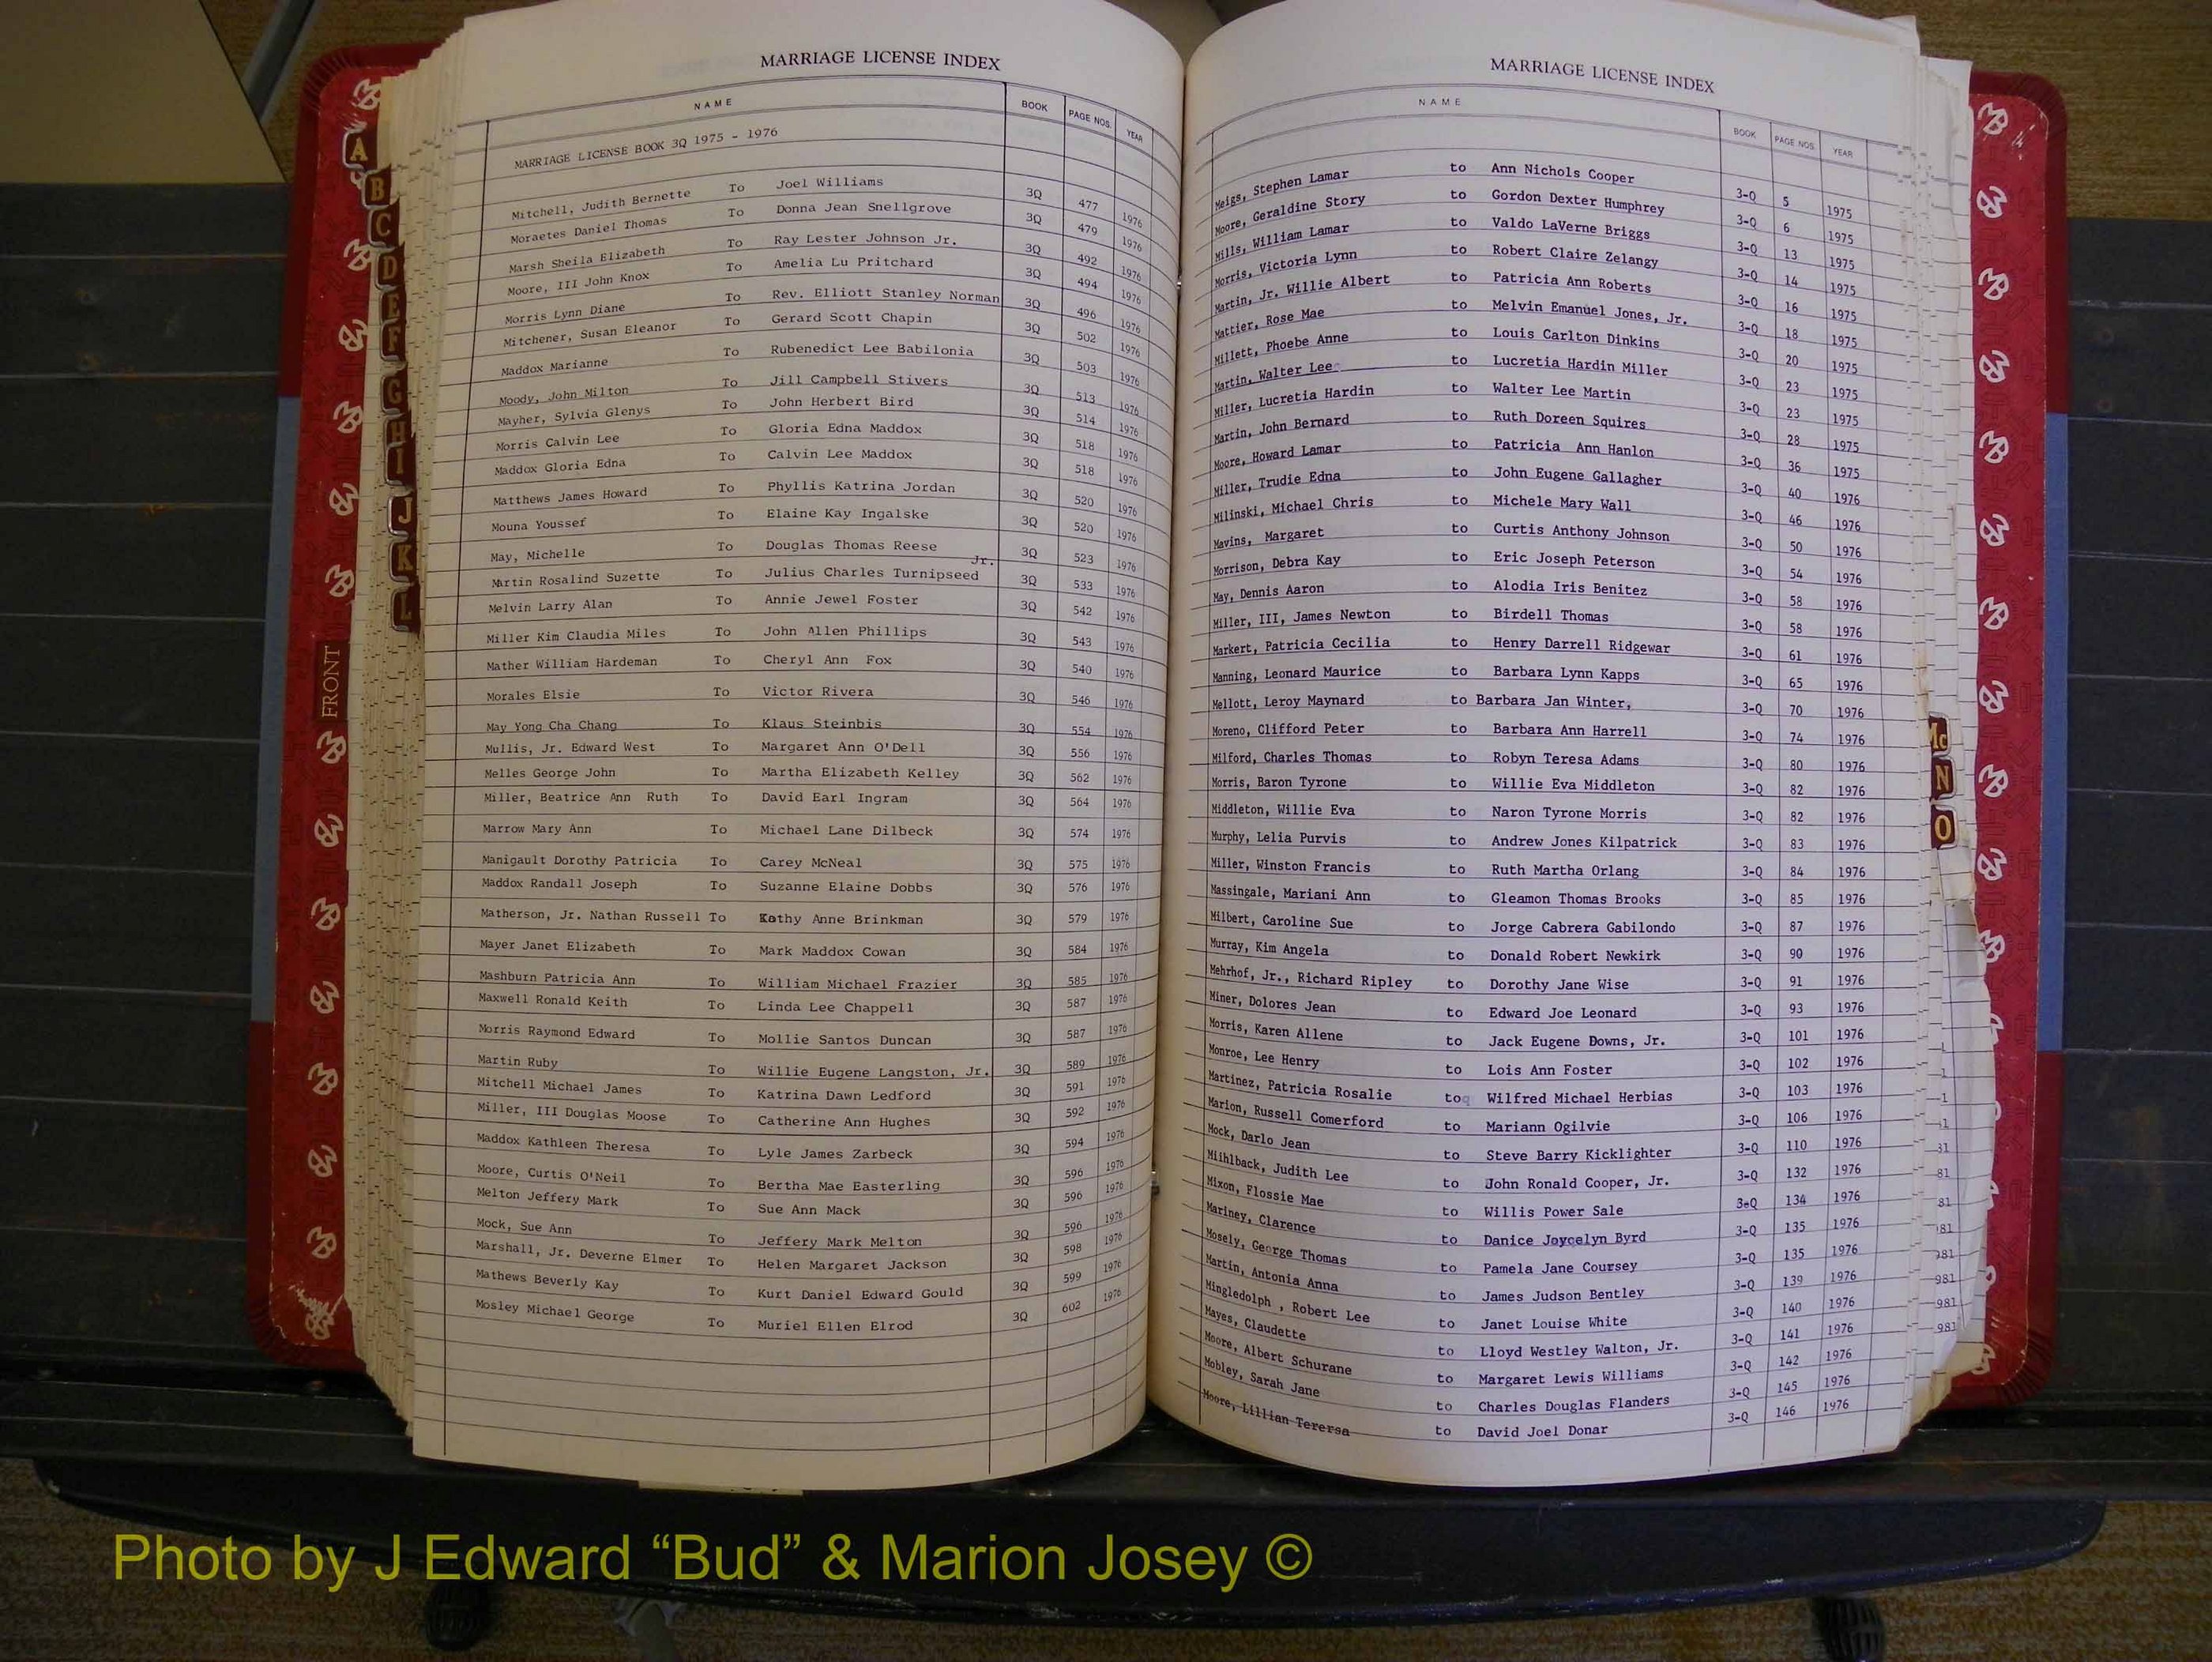 MARRIAGE LICENSE INDEX
NAME BOOK PAGE NOS. YEAR
MARRIAGE LICENSE BOOK 3Q 1975 - 1976
Mitchell, Judith Bernette To Joel Williams 3Q 477 1976
Moraetes Daniel Thomas To Donna Jean Snellgrove 3Q 479 1976
Marsh Sheila Elizabeth To Ray Lester Johnson Jr. 3Q 492 1976
Moore, III John Knox To Amelia Lu Pritchard 3Q 494 1976
Morris Lynn Diane To Rev. Elliott Stanley Norman 3Q 496 1976
Mitchener, Susan Eleanor To Gerard Scott Chapin 3Q 502 1976
Maddox Marianne To Rubenedict Lee Babilonia 3Q 503 1976
Moody, John Milton To Jill Campbell Stivers 3Q 513 1976
Mayher, Sylvia Glenys To John Herbert Bird 3Q 514 1976
Morris Calvin Lee To Gloria Edna Maddox 3Q 518 1976
Maddox Gloria Edna To Calvin Lee Maddox 3Q 518 1976
Matthews James Howard To Phyllis Katrina Jordan 3Q 520 1976
Mouna Youssef To Elaine Kay Ingalske 3Q 520 1976
May, Michelle To Douglas Thomas Reese 3Q 523 1976
Martin Rosalind Suzette To Julius Charles Turnipseed Jr. 3Q 533 1976
Melvin Larry Alan To Annie Jewel Foster 3Q 542 1976
Miller Kim Claudia Miles To John Allen Phillips 3Q 543 1976
Mather William Hardeman To Cheryl Ann Fox 3Q 540 1976
Morales Elsie To Victor Rivera 3Q 546 1976
May Yong Cha Chang To Klaus Steinbis 3Q 554 1976
Mullis, Jr. Edward West To Margaret Ann O'Dell 3Q 556 1976
Melles George John To Martha Elizabeth Kelley 3Q 562 1976
Miller, Beatrice Ann Ruth To David Earl Ingram 3Q 564 1976
Marrow Mary Ann To Michael Lane Dilbeck 3Q 574 1976
Manigault Dorothy Patricia To Carey McNeal 3Q 575 1976
Maddox Randall Joseph To Suzanne Elaine Dobbs 3Q 576 1976
Matherson, Jr. Nathan Russell To Kathy Anne Brinkman 3Q 579 1976
Mayer Janet Elizabeth To Mark Maddox Cowan 3Q 584 1976
Mashburn Patricia Ann To William Michael Frazier 3Q 585 1976
Maxwell Ronald Keith To Linda Lee Chappell 3Q 587 1976
Morris Raymond Edward To Mollie Santos Duncan 3Q 587 1976
Martin Ruby To Willie Eugene Langston, Jr. 3Q 589 1976
Mitchell Michael James To Katrina Dawn Ledford 3Q 591 1976
Miller, III Douglas Moose To Catherine Ann Hughes 3Q 592 1976
Maddox Kathleen Theresa To Lyle James Zarbeck 3Q 594 1976
Moore, Curtis O'Neil To Bertha Mae Easterling 3Q 596 1976
Melton Jeffery Mark To Sue Ann Mack 3Q 596 1976
Mock, Sue Ann To Jeffery Mark Melton 3Q 596 1976
Marshall, Jr. Deverne Elmer To Helen Margaret Jackson 3Q 598 1976
Mathews Beverly Kay To Kurt Daniel Edward Gould 3Q 599 1976
Mosley Michael George To Muriel Ellen Elrod 3Q 602 1976
MARRIAGE LICENSE INDEX
NAME BOOK PAGE NOS. YEAR
Meigs, Stephen Lamar to Ann Nichols Cooper 3-Q 5 1975
Moore, Geraldine Story to Gordon Dexter Humphrey 3-Q 6 1975
Mills, William Lamar to Valdo LaVerne Briggs 3-Q 13 1975
Morris, Victoria Lynn to Robert Claire Zelangy 3-Q 14 1975
Martin, Jr. Willie Albert to Patricia Ann Roberts 3-Q 16 1975
Mattier, Rose Mae to Melvin Emanuel Jones, Jr. 3-Q 18 1975
Millett, Phoebe Anne to Louis Carlton Dinkins 3-Q 20 1975
Martin, Walter Lee to Lucretia Hardin Miller 3-Q 23 1975
Miller, Lucretia Hardin to Walter Lee Martin 3-Q 23 1975
Martin, John Bernard to Ruth Doreen Squires 3-Q 28 1975
Moore, Howard Lamar to Patricia Ann Hanlon 3-Q 36 1975
Miller, Trudie Edna to John Eugene Gallagher 3-Q 40 1976
Milinski, Michael Chris to Michele Mary Wall 3-Q 46 1976
Mavins, Margaret to Curtis Anthony Johnson 3-Q 50 1976
Morrison, Debra Kay to Eric Joseph Peterson 3-Q 54 1976
May, Dennis Aaron to Alodia Iris Benitez 3-Q 58 1976
Miller, III, James Newton to Birdell Thomas 3-Q 58 1976
Markert, Patricia Cecilia to Henry Darrell Ridgewar 3-Q 61 1976
Manning, Leonard Maurice to Barbara Lynn Kapps 3-Q 65 1976
Mellott, Leroy Maynard to Barbara Jan Winter, 3-Q 70 1976
Moreno, Clifford Peter to Barbara Ann Harrell 3-Q 74 1976
Milford, Charles Thomas to Robyn Teresa Adams 3-Q 80 1976
Morris, Baron Tyrone to Willie Eva Middleton 3-Q 82 1976
Middleton, Willie Eva to Naron Tyrone Morris 3-Q 82 1976
Murphy, Lelia Purvis to Andrew Jones Kilpatrick 3-Q 83 1976
Miller, Winston Francis to Ruth Martha Orlang 3-Q 84 1976
Massingale, Mariani Ann to Gleamon Thomas Brooks 3-Q 85 1976
Milbert, Caroline Sue to Jorge Cabrera Gabilondo 3-Q 87 1976
Murray, Kim Angela to Donald Robert Newkirk 3-Q 90 1976
Mehrhof, Jr., Richard Ripley to Dorothy Jane Wise 3-Q 91 1976
Miner, Dolores Jean to Edward Joe Leonard 3-Q 93 1976
Morris, Karen Allene to Jack Eugene Downs, Jr. 3-Q 101 1976
Monroe, Lee Henry to Lois Ann Foster 3-Q 102 1976
Martinez, Patricia Rosalie to Wilfred Michael Herbias 3-Q 103 1976
Marion, Russell Comerford to Mariann Ogilvie 3-Q 106 1976
Mock, Darlo Jean to Steve Barry Kicklighter 3-Q 110 1976
Miihlback, Judith Lee to John Ronald Cooper, Jr. 3-Q 132 1976
Mixon, Flossie Mae to Willis Power Sale 3-Q 134 1976
Mariney, Clarence to Danice Joycelyn Byrd 3-Q 135 1976
Mosely, George Thomas to Pamela Jane Coursey 3-Q 135 1976
Martin, Antonia Anna to James Judson Bentley 3-Q 139 1976
Mingledolph , Robert Lee to Janet Louise White 3-Q 140 1976
Mayes, Claudette to Lloyd Westley Walton, Jr. 3-Q 141 1976
Moore, Albert Schurane to Margaret Lewis Williams 3-Q 142 1976
Mobley, Sarah Jane to Charles Douglas Flanders 3-Q 145 1976
Moore, Lillian Terersa to David Joel Donar 3-Q 146 1976
A
B
C
D
E
F
G
H
I
J
K
L
FRONT
Mc
N
O
Photo by J Edward “Bud” & Marion Josey ©